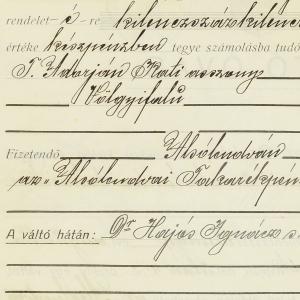 rendelet-é re kilenczszázkilencz
értéke készpénzben tegye számolásba tudó
T. Adorján Kati asszony
Völgyifalu
Fizetendő Alsólendván
az "Alsólendvai Takarékpén
A váltó hátán: Dr Hajós Ignácz s